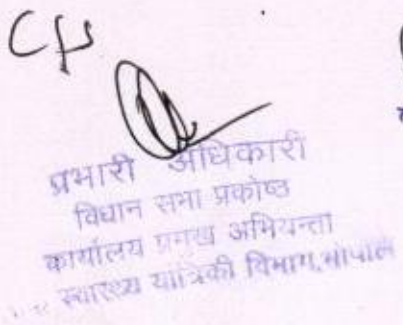 प्रभारी अधिकारी
विधान सभा प्रकोष्ठ
कार्यालय प्रमुख अभियन्ता
स्वास्थ्य यांत्रिकी विभाग, भोपाल